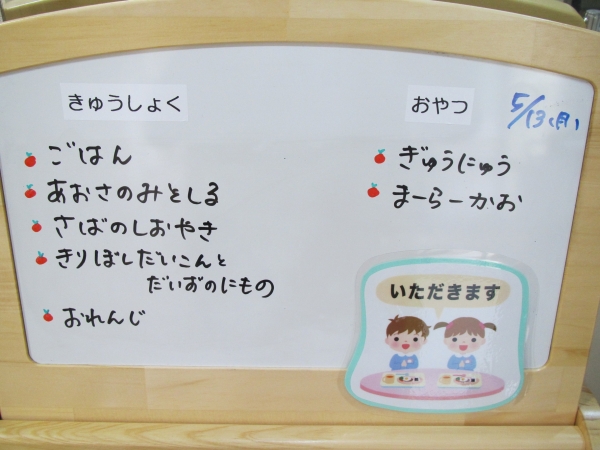 きゅうしょく
ごはん
あおさのみそしる
さばのしおやき
きりぼしだいこんと
だいずのにもの
おれんじ
おやつ
5/13(月)
ぎゅうにゅう
まーらーかお
いただきます